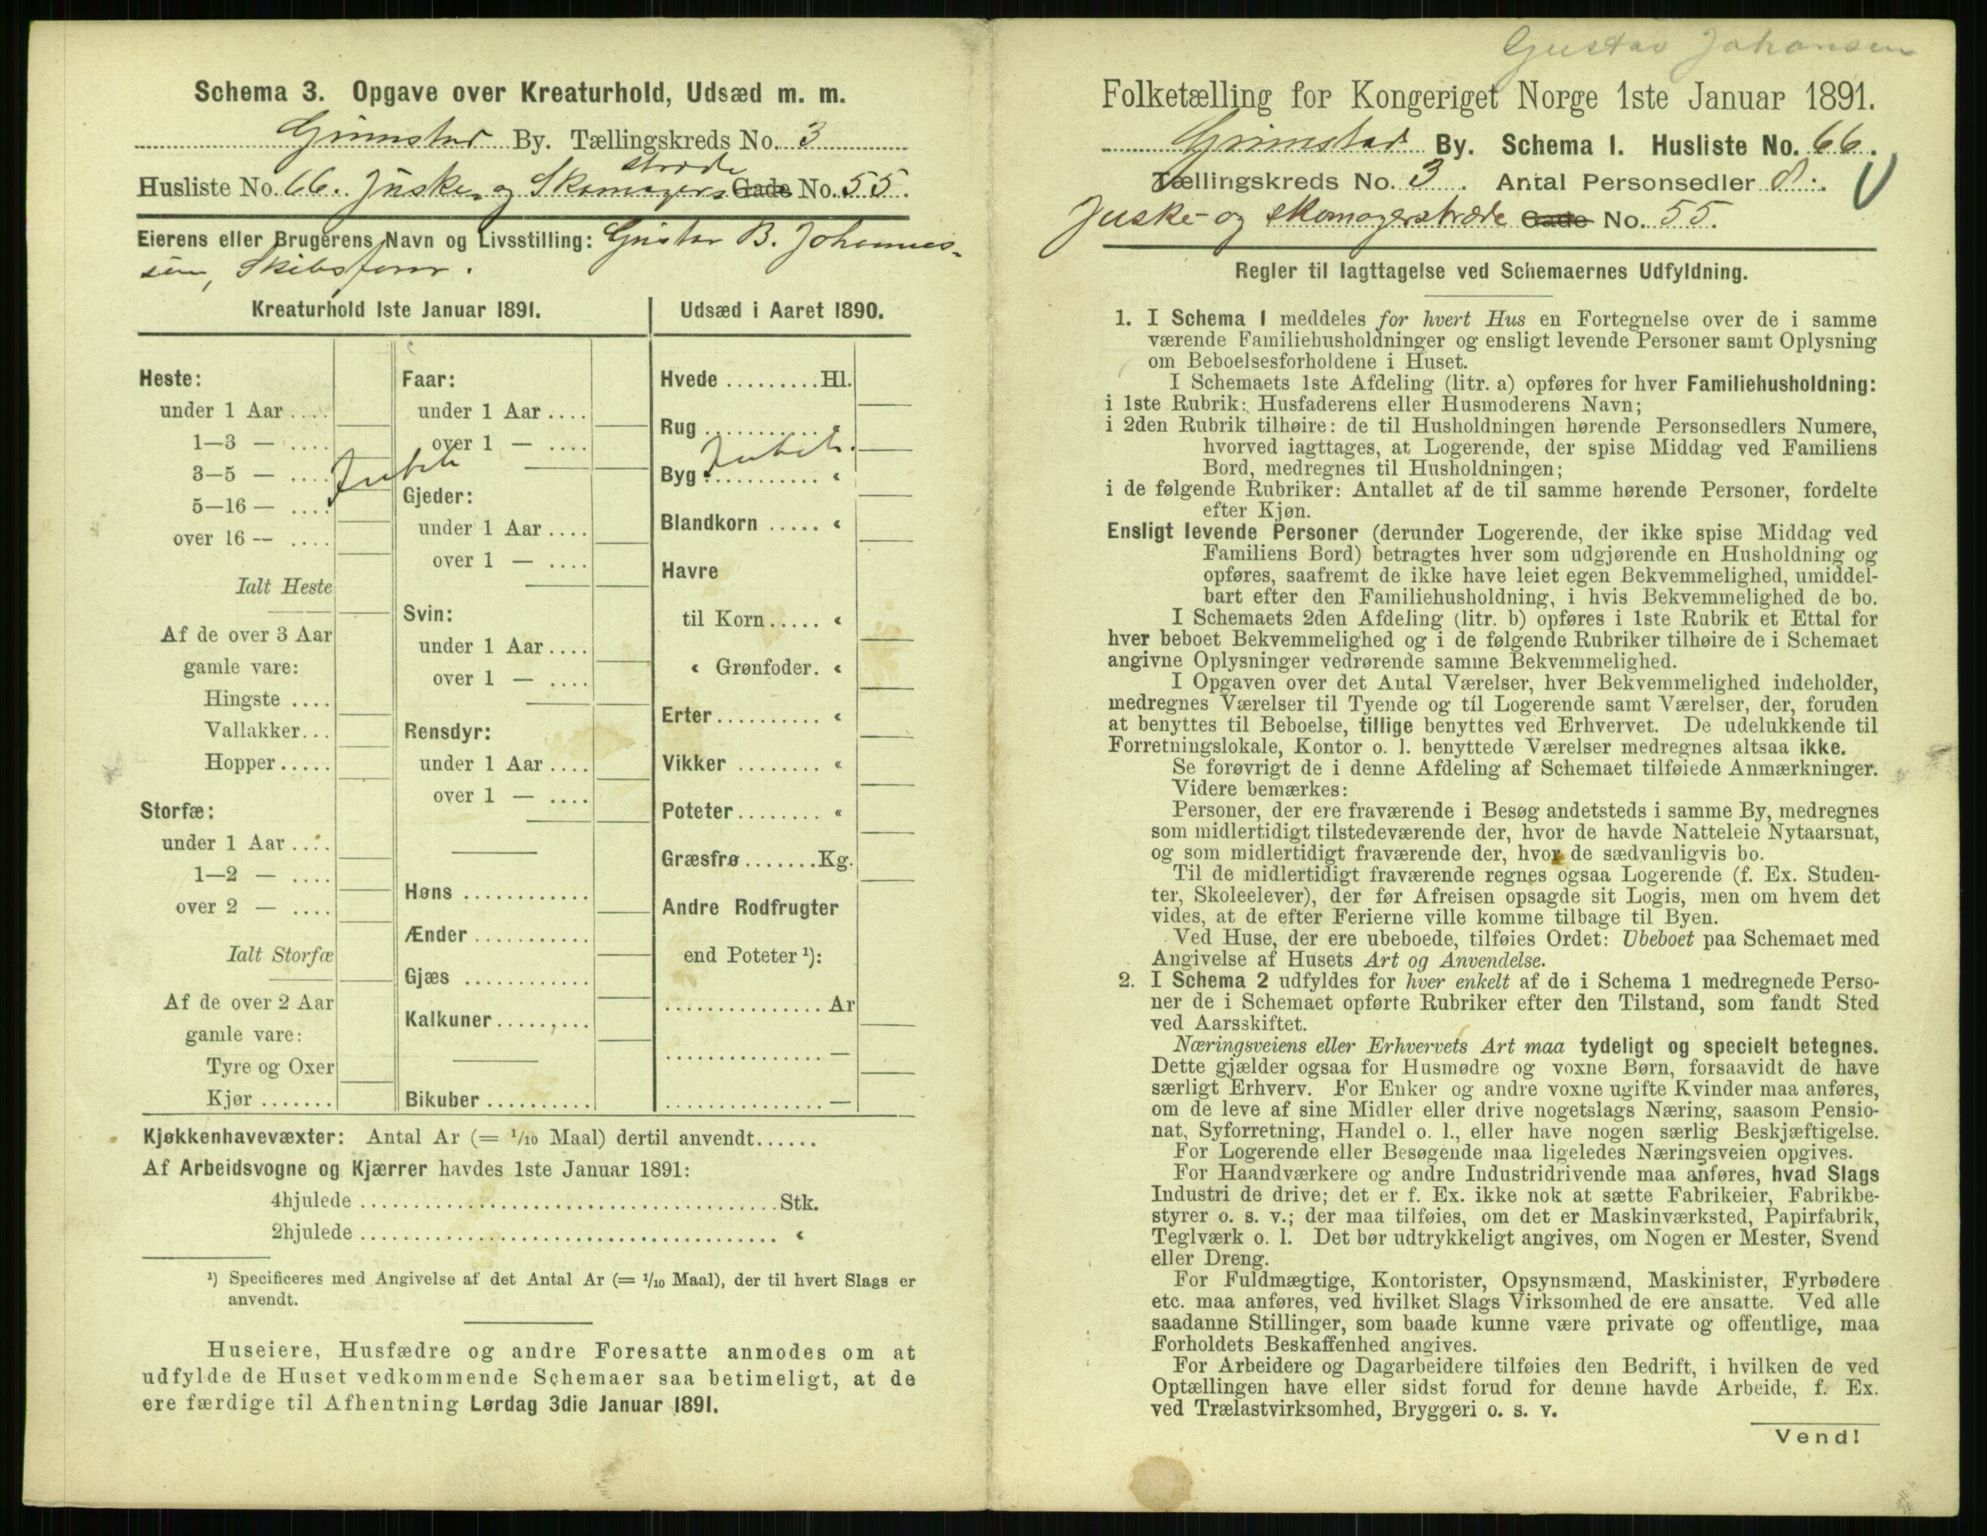 Schema 3. Opgave over Kreaturhold, Udsæd m. m.
Grimstad By. Tællingskreds No. 3
Husliste No. 66. Juske- og Skomagerstræde Gade No. 55.
Eierens eller Brugerens Navn og Livsstilling: Gustav B. Johannes-
sen, Skibsfører.
Kreaturhold 1ste Januar 1891.
Heste:
under 1 Aar ....
1—3 — ....
3—5 — ....
5—16 — ....
over 16 — ....
Ialt Heste
Af de over 3 Aar
gamle vare:
Hingste ....
Vallakker...
Hopper.....
Storfæ:
under 1 Aar ....
1—2 — ....
over 2 — ....
Ialt Storfæ
Af de over 2 Aar
gamle vare:
Tyre og Oxer
Kjør .......
Faar:
under 1 Aar ....
over 1 — ....
Gjeder:
under 1 Aar ....
over 1 — ....
Svin:
under 1 Aar ....
over 1 — ....
Rensdyr:
under 1 Aar ....
over 1 — ....
Høns ............
Ænder ...........
Gjæs ............
Kalkuner.........
Bikuber ..........
Udsæd i Aaret 1890.
Hvede .........Hl.
Rug ........... «
Byg ........... «
Blandkorn ..... «
Havre
til Korn..... «
« Grønfoder. «
Erter.......... «
Vikker ........ «
Poteter........ «
Græsfrø .......Kg.
Andre Rodfrugter
end Poteter ¹):
...............Ar
............... —
............... —
Kjøkkenhavevæxter: Antal Ar (= 1/10 Maal) dertil anvendt......
Af Arbeidsvogne og Kjærrer havdes 1ste Januar 1891:
4hjulede ........................................Stk.
2hjulede ........................................ «
¹) Specificeres med Angivelse af det Antal Ar (= 1/10 Maal), der til hvert Slags er
anvendt.
Huseiere, Husfædre og andre Foresatte anmodes om at
udfylde de Huset vedkommende Schemaer saa betimeligt, at de
ere færdige til Afhentning Lørdag 3die Januar 1891.
Gustav Johansen
Folketælling for Kongeriget Norge 1ste Januar 1891.
Grimstad By. Schema I. Husliste No. 66.
Tællingskreds No. 3. Antal Personsedler 8.
Juske- og Skomagerstræde Gade No. 55.
Regler til Iagttagelse ved Schemaernes Udfyldning.
1. I Schema 1 meddeles for hvert Hus en Fortegnelse over de i samme
værende Familiehusholdninger og ensligt levende Personer samt Oplysning
om Beboelsesforholdene i Huset.
I Schemaets 1ste Afdeling (litr. a) opføres for hver Familiehusholdning:
i 1ste Rubrik: Husfaderens eller Husmoderens Navn;
i 2den Rubrik tilhøire: de til Husholdningen hørende Personsedlers Numere,
hvorved iagttages, at Logerende, der spise Middag ved Familiens
Bord, medregnes til Husholdningen;
i de følgende Rubriker: Antallet af de til samme hørende Personer, fordelte
efter Kjøn.
Ensligt levende Personer (derunder Logerende, der ikke spise Middag ved
Familiens Bord) betragtes hver som udgjørende en Husholdning og
opføres, saafremt de ikke have leiet egen Bekvemmelighed, umiddel-
bart efter den Familiehusholdning, i hvis Bekvemmelighed de bo.
I Schemaets 2den Afdeling (litr. b) opføres i 1ste Rubrik et Ettal for
hver beboet Bekvemmelighed og i de følgende Rubriker tilhøire de i Schemaet
angivne Oplysninger vedrørende samme Bekvemmelighed.
I Opgaven over det Antal Værelser, hver Bekvemmelighed indeholder,
medregnes Værelser til Tyende og til Logerende samt Værelser, der, foruden
at benyttes til Beboelse, tillige benyttes ved Erhvervet. De udelukkende til
Forretningslokale, Kontor o. l. benyttede Værelser medregnes altsaa ikke.
Se forøvrigt de i denne Afdeling af Schemaet tilføiede Anmærkninger.
Videre bemærkes:
Personer, der ere fraværende i Besøg andetsteds i samme By, medregnes
som midlertidigt tilstedeværende der, hvor de havde Natteleie Nytaarsnat,
og som midlertidigt fraværende der, hvor de sædvanligvis bo.
Til de midlertidigt fraværende regnes ogsaa Logerende (f. Ex. Studen-
ter, Skoleelever), der før Afreisen opsagde sit Logis, men om hvem det
vides, at de efter Ferierne ville komme tilbage til Byen.
Ved Huse, der ere ubeboede, tilføies Ordet: Ubeboet paa Schemaet med
Angivelse af Husets Art og Anvendelse.
2. I Schema 2 udfyldes for hver enkelt af de i Schema 1 medregnede Perso-
ner de i Schemaet opførte Rubriker efter den Tilstand, som fandt Sted
ved Aarsskiftet.
Næringsveiens eller Erhvervets Art maa tydeligt og specielt betegnes.
Dette gjælder ogsaa for Husmødre og voxne Børn, forsaavidt de have
særligt Erhverv. For Enker og andre voxne ugifte Kvinder maa anføres,
om de leve af sine Midler eller drive nogetslags Næring, saasom Pensio-
nat, Syforretning, Handel o. l., eller have nogen særlig Beskjæftigelse.
For Logerende eller Besøgende maa ligeledes Næringsveien opgives.
For Haandværkere og andre Industridrivende maa anføres, hvad Slags
Industri de drive; det er f. Ex. ikke nok at sætte Fabrikeier, Fabrikbe-
styrer o. s. v.; der maa tilføies, om det er Maskinværksted, Papirfabrik,
Teglværk o. l. Det bør udtrykkeligt angives, om Nogen er Mester, Svend
eller Dreng.
For Fuldmægtige, Kontorister, Opsynsmænd, Maskinister, Fyrbødere
etc. maa anføres, ved hvilket Slags Virksomhed de ere ansatte. Ved alle
saadanne Stillinger, som baade kunne være private og offentlige, maa
Forholdets Beskaffenhed angives.
For Arbeidere og Dagarbeidere tilføies den Bedrift, i hvilken de ved
Optællingen have eller sidst forud for denne havde Arbeide, f. Ex.
ved Trælastvirksomhed, Bryggeri o. s. v.
Vend!